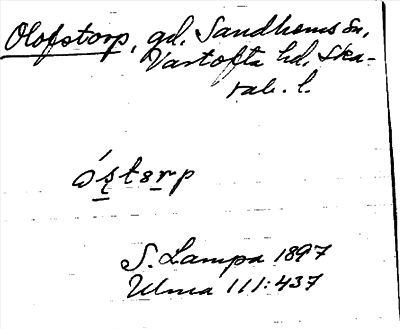 Olofstorp, gd, Sandhems sn,
Vartofta hd, Ska-
rab. l.
ó's̲tər̲p
S. Lampa 1897
Ulma 111:437